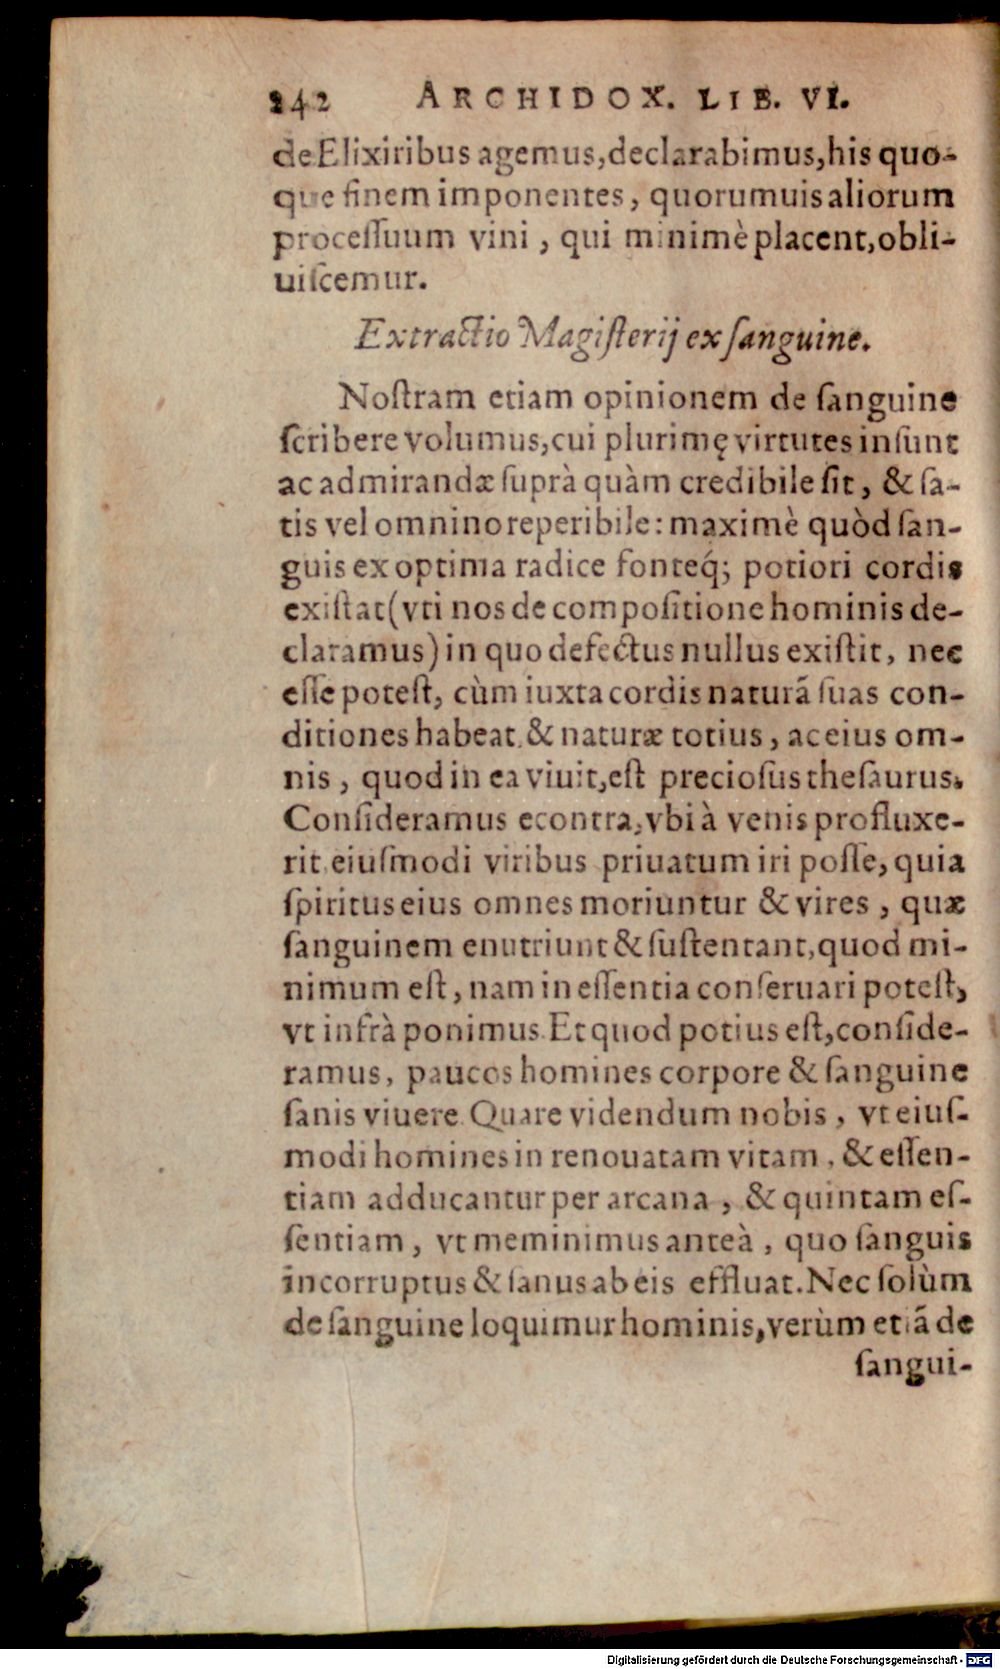 242 ARCHIDOX. LIB. VI.
de Elixiribus agemus, declarabimus, his quo-
que finem imponentes, quorumuis aliorum
processuum vini, qui minimè placent, obli-
uiscemur.
Extractio Magisterij ex sanguine.
Nostram etiam opinionem de sanguine
scribere volumus, cui plurimę virtutes insunt
ac admirandæ suprà quàm credibile sit, & sa-
tis vel omnino reperibile: maximè quòd san-
guis ex optima radice fonteq́; potiori cordis
existat (vti nos de compositione hominis de-
claramus) in quo defectus nullus existit, nec
esse potest, cùm iuxta cordis naturã suas con-
ditiones habeat & naturæ totius, ac eius om-
nis, quod in ea viuit, est preciosus thesaurus.
Consideramus econtra, vbi à venis profluxe-
rit eiusmodi viribus priuatum iri posse, quia
spiritus eius omnes moriuntur & vires, quæ
sanguinem enutriunt & sustentant, quod mi-
nimum est, nam in essentia conseruari potest,
vt infrà ponimus. Et quod potius est, conside-
ramus, paucos homines corpore & sanguine
sanis viuere. Quare videndum nobis, vt eius-
modi homines in renouatam vitam, & essen-
tiam adducantur per arcana, & quintam es-
sentiam, vt meminimus anteà, quo sanguis
incorruptus & sanus ab eis effluat. Nec solùm
de sanguine loquimur hominis, verùm etiã de
sangui-
Digitalisierung gefördert durch die Deutsche Forschungsgemeinschaft - DFG